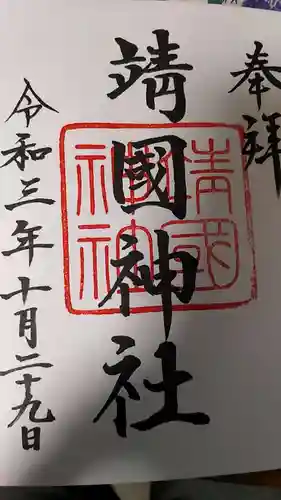 奉拝
靖國神社
靖國
神社
令和三年十月二十九日